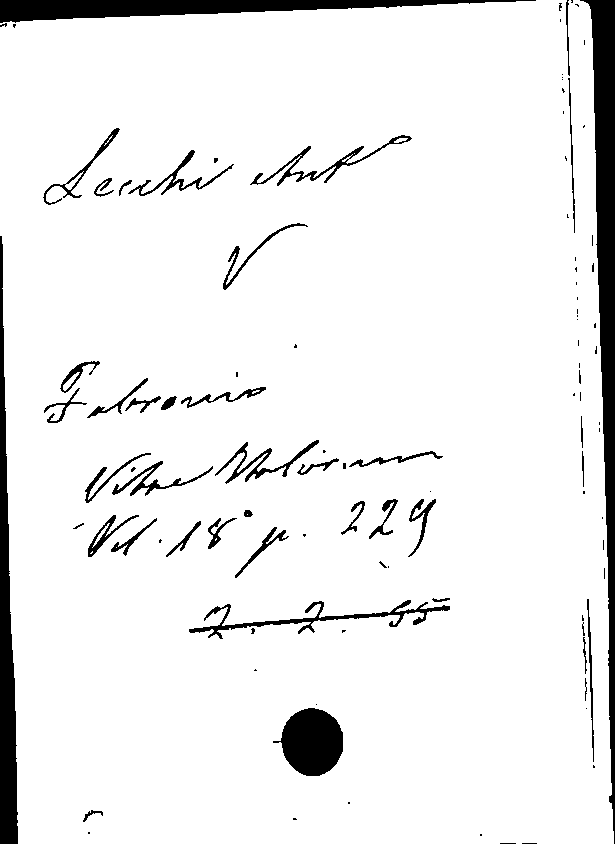 Lecchi Ant°
V
Fabronio
Vitae Italorum
Vol. 18° p. 229
2. 2. 55